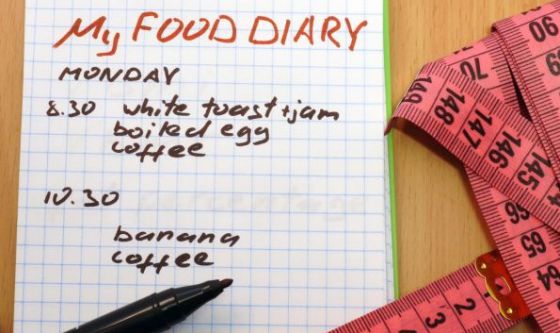 My FOOD DIARY
MONDAY
8.30 white toast+jam
boiled egg
coffee
10.30
banana
coffee
149
148
147
146
145
70
90
69
66
65
64
1
2
3